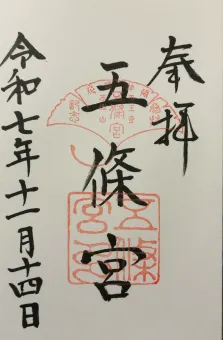 奉拝
五條宮
令和七年十一月十四日
五條宮印